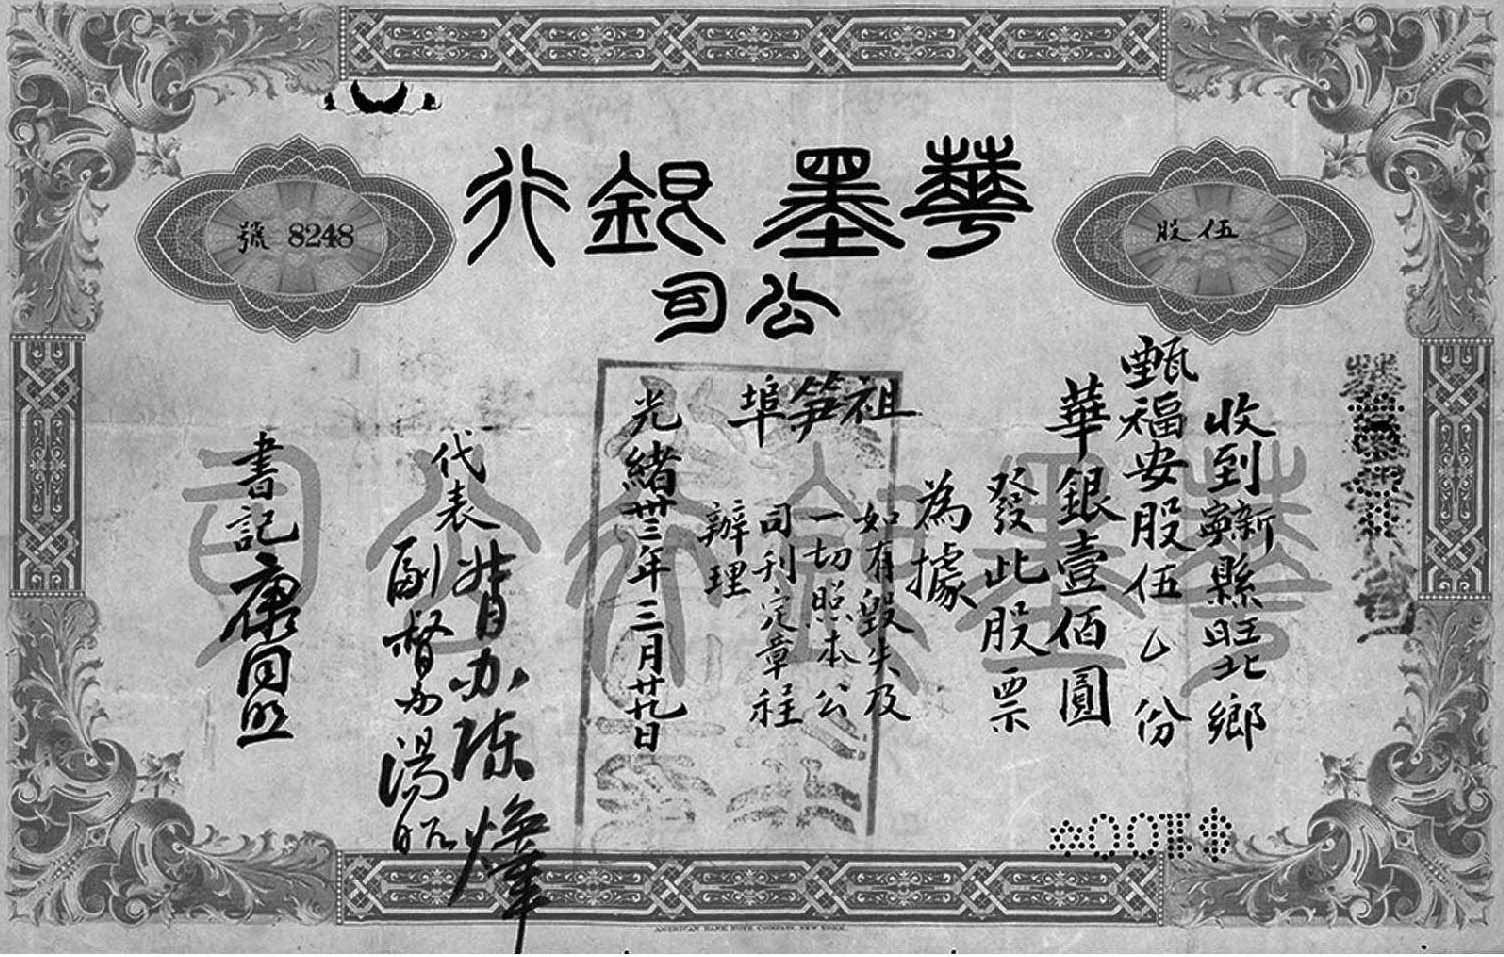 華墨銀行
公司
伍股
號 8248
收到新寧縣旺北鄉
甄福安股伍 份
華銀壹佰圓
發此股票
為據
如有毀失及
一切照本公
司刊定章程
辦理
祖笋埠
光緒卅三年三月廿九日
代表
督办陈
副督办湯昭
書記唐
華墨銀行公司
$100
AMERICAN BANK NOTE COMPANY, NEW YORK.